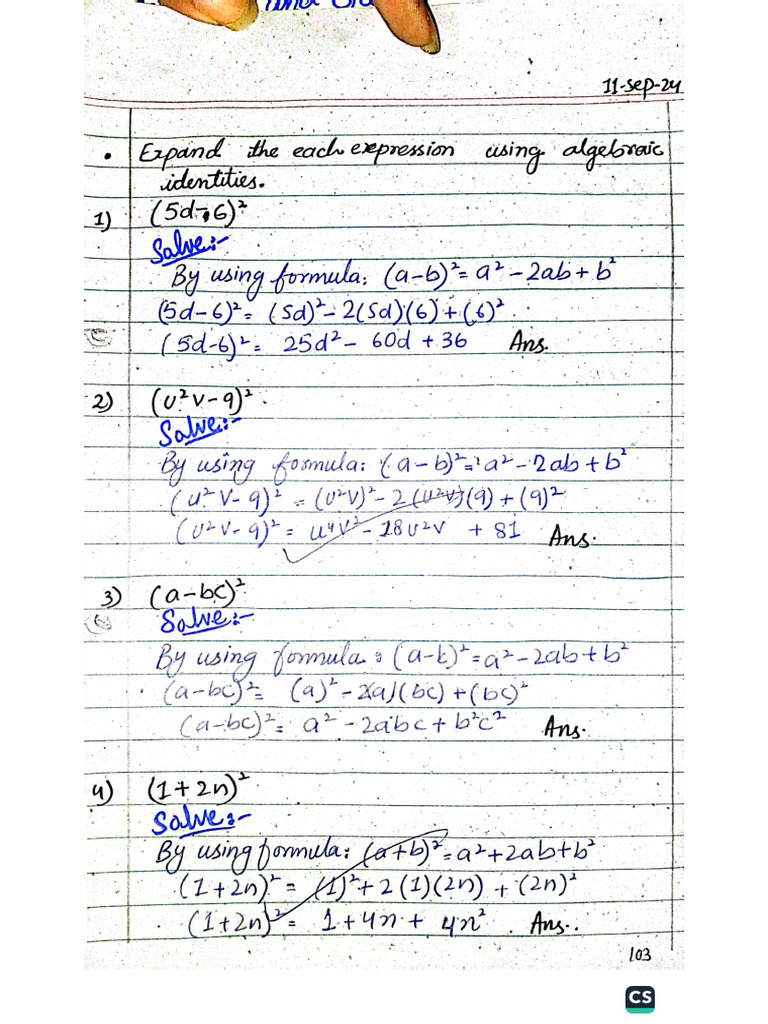 11-sep-24
• Expand the each expression using algebraic
identities.
1) (5d-6)²
Solve:-
By using formula: (a-b)² = a² - 2ab + b²
(5d-6)² = (5d)² - 2(5d)(6) + (6)²
(5d-6)² = 25d² - 60d + 36 Ans.
2) (u²v-9)².
Solve:-
By using formula: (a-b)² = a² - 2ab + b²
(u²v-9)² = (u²v)² - 2(u²v)(9) + (9)²
(u²v-9)² = u⁴v² - 18u²v + 81 Ans.
3) (a-bc)²
Solve:-
By using formula: (a-b)² = a² - 2ab + b²
(a-bc)² = (a)² - 2(a)(bc) + (bc)²
(a-bc)² = a² - 2abc + b²c² Ans.
4) (1+2n)²
Solve:-
By using formula: (a+b)² = a² + 2ab + b²
(1+2n)² = (1)² + 2(1)(2n) + (2n)²
(1+2n)² = 1 + 4n + 4n². Ans..
103
CS